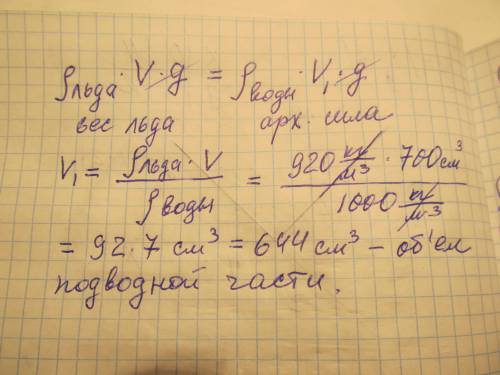 ρльда · V · g = ρводы · V₁ · g
вес льда арх. сила
V₁ = ρльда · V / ρводы = 920 кг/м³ · 700 см³ / 1000 кг/м³
= 92 · 7 см³ = 644 см³ – об'ем
подводной части.